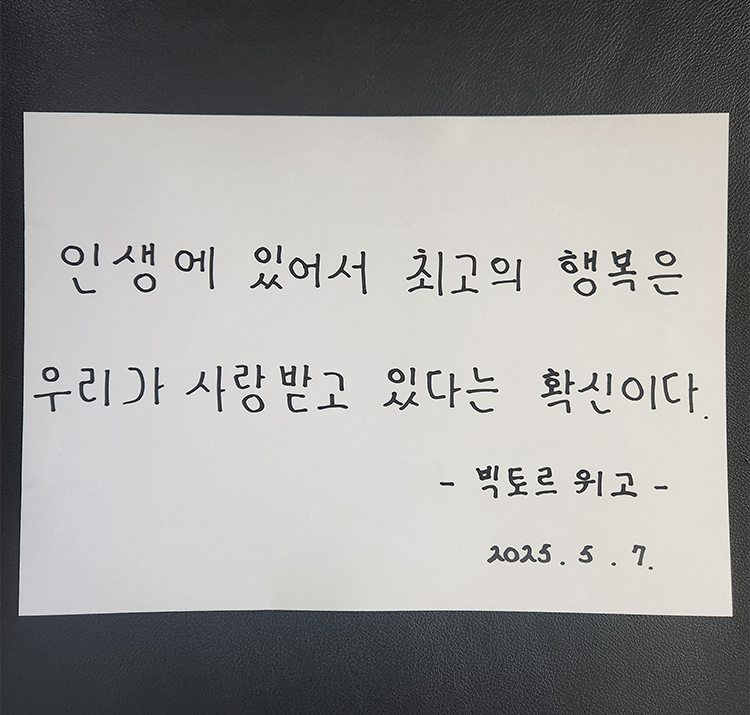 인생에 있어서 최고의 행복은
우리가 사랑받고 있다는 확신이다.
- 빅토르 위고 -
2025. 5. 7.